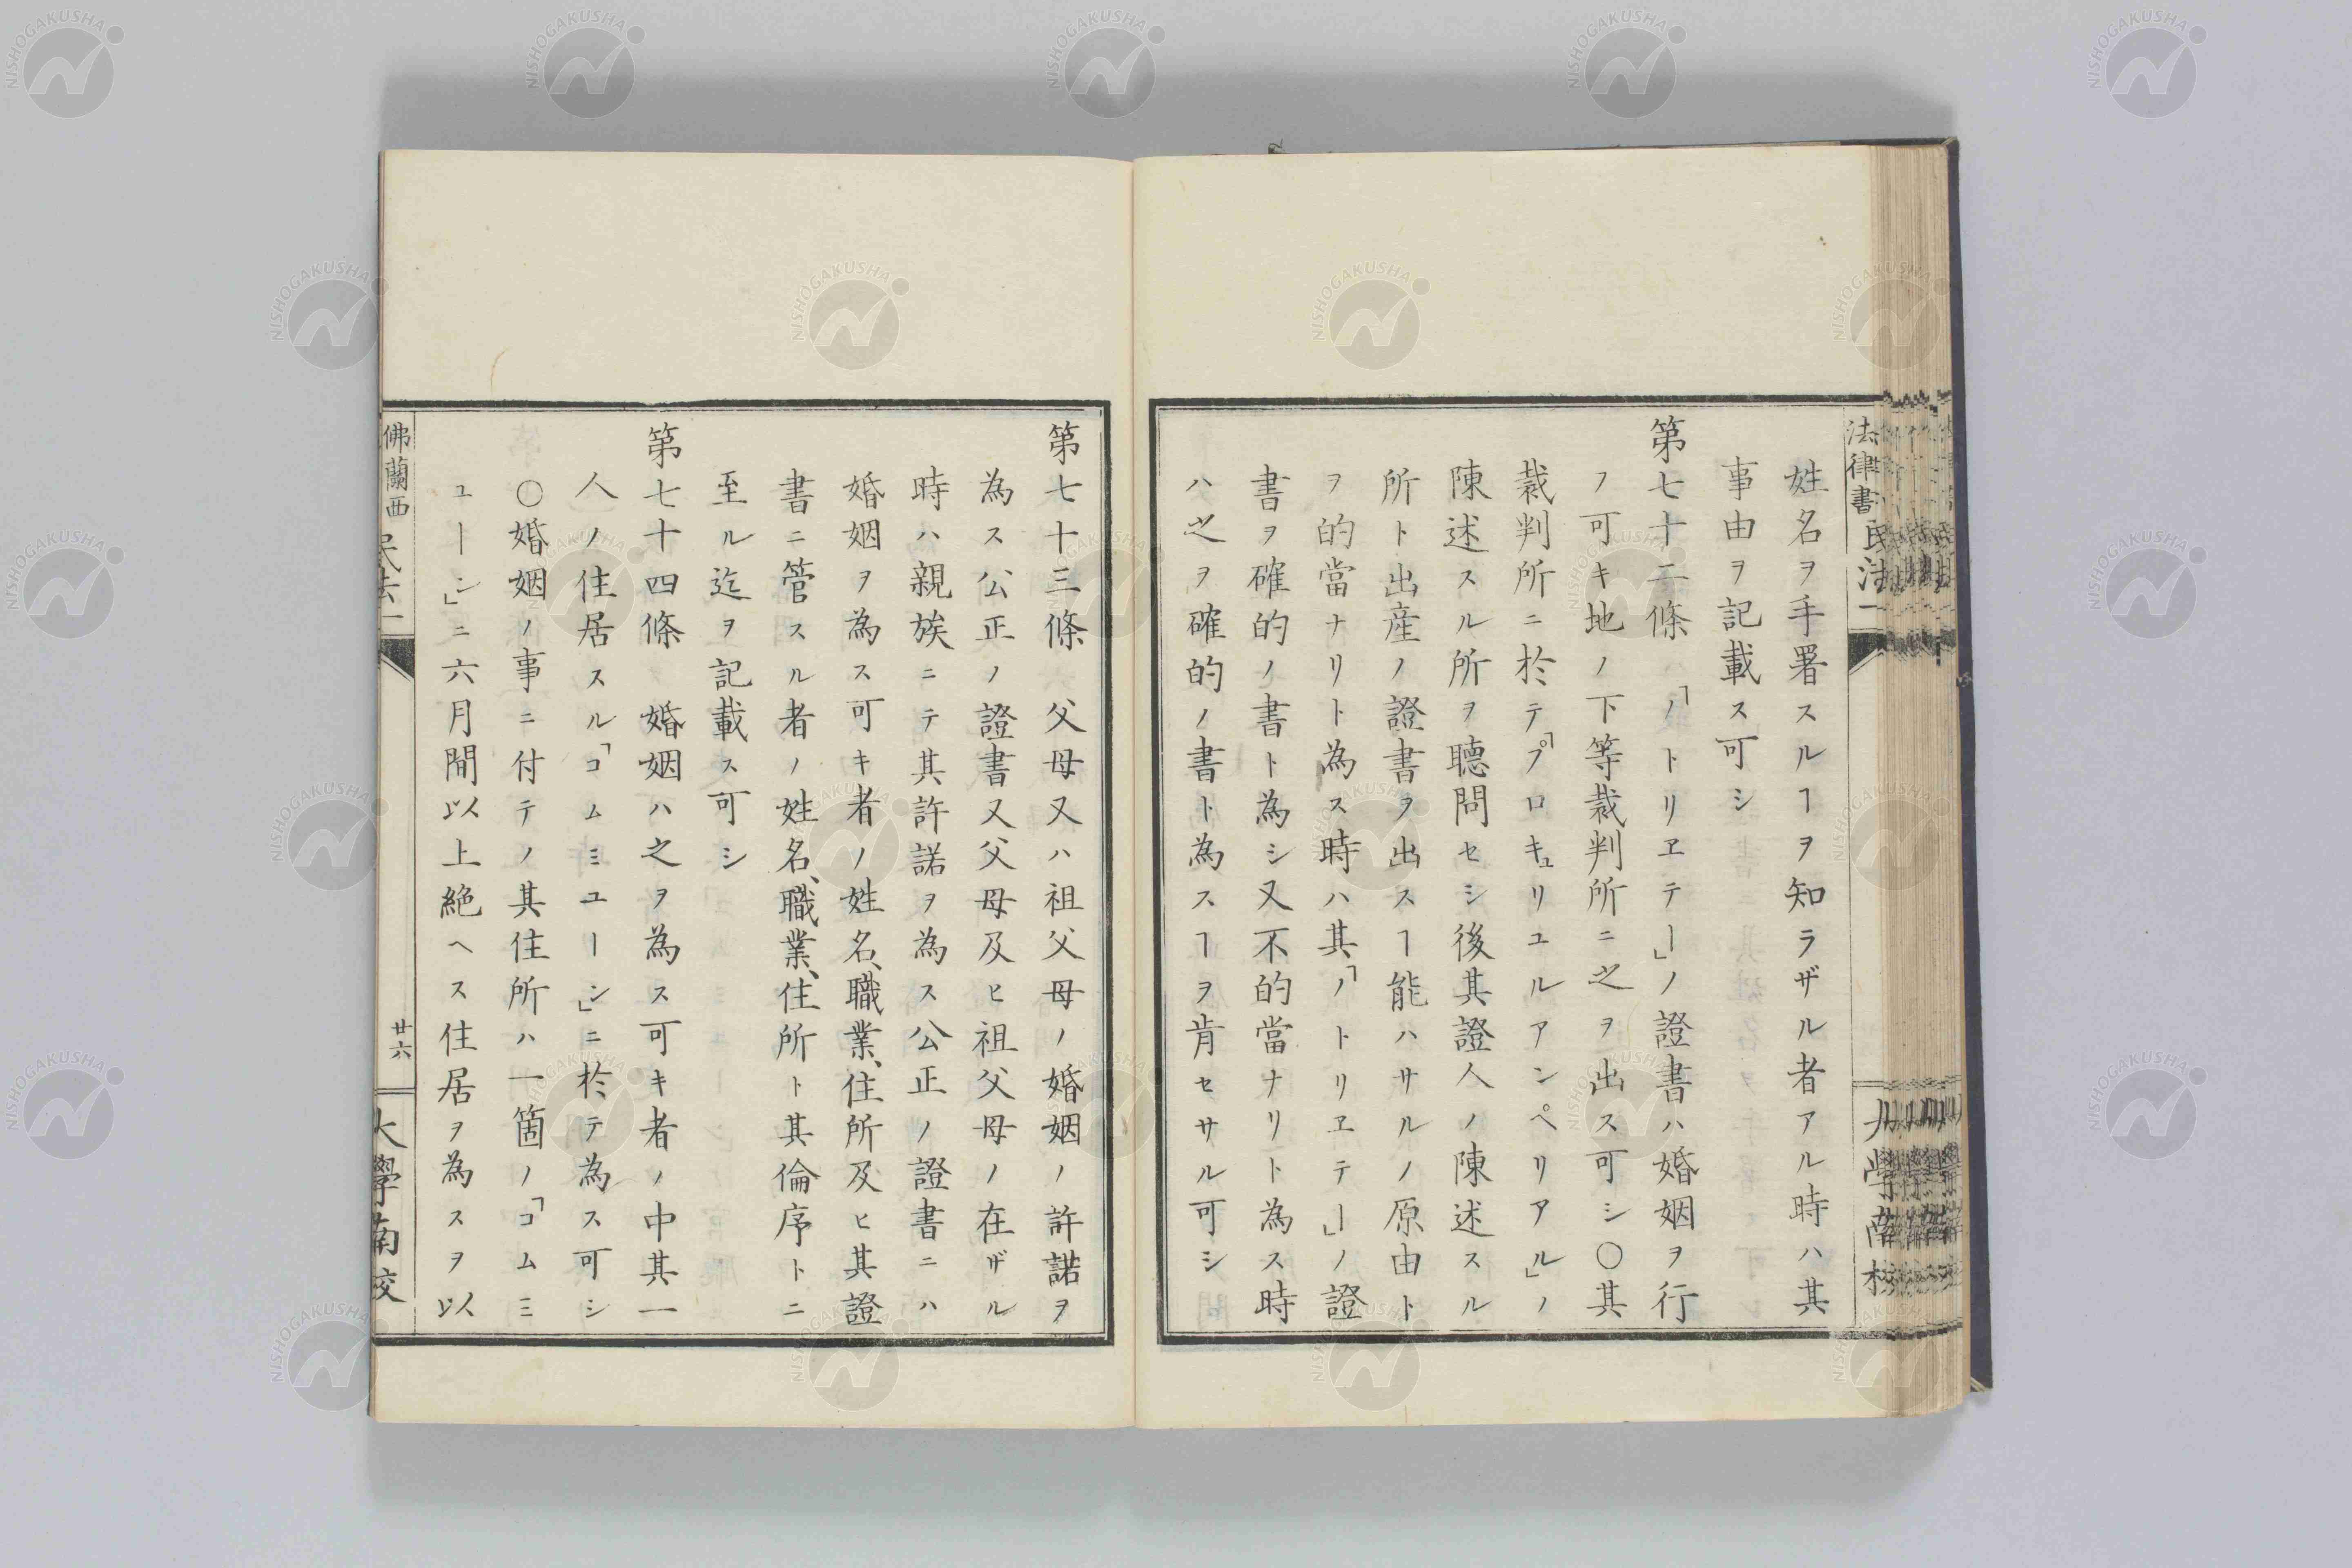 法律書 民法一
姓名ヲ手署スルヿヲ知ラザル者アル時ハ其
事由ヲ記載ス可シ
第七十二條 「ノトリヱテー」ノ證書ハ婚姻ヲ行
フ可キ地ノ下等裁判所ニ之ヲ出ス可シ〇其
裁判所ニ於テ「プロキュリユルアンペリアル」ノ
陳述スル所ヲ聽問セシ後其證人ノ陳述スル
所ト出産ノ證書ヲ出スヿ能ハサルノ原由ト
ヲ的當ナリト為ス時ハ其「ノトリヱテー」ノ證
書ヲ確的ノ書ト為シ又不的當ナリト為ス時
ハ之ヲ確的ノ書ト為スヿヲ肯セサル可シ
第七十三條 父母又ハ祖父母ノ婚姻ノ許諾ヲ
為ス公正ノ證書又父母及ヒ祖父母ノ在ザル
時ハ親族ニテ其許諾ヲ為ス公正ノ證書ニハ
婚姻ヲ為ス可キ者ノ姓名、職業、住所及ヒ其證
書ニ管スル者ノ姓名、職業、住所ト其倫序トニ
至ル迄ヲ記載ス可シ
第七十四條 婚姻ハ之ヲ為ス可キ者ノ中其一
人ノ住居スル「コムミユーン」ニ於テ為ス可シ
〇婚姻ノ事ニ付テノ其住所ハ一箇ノ「コムミ
ユーン」ニ六月間以上絶ヘス住居ヲ為スヲ以
佛蘭西 民法一 廿六 大學南校
NISHOGAKUSHA